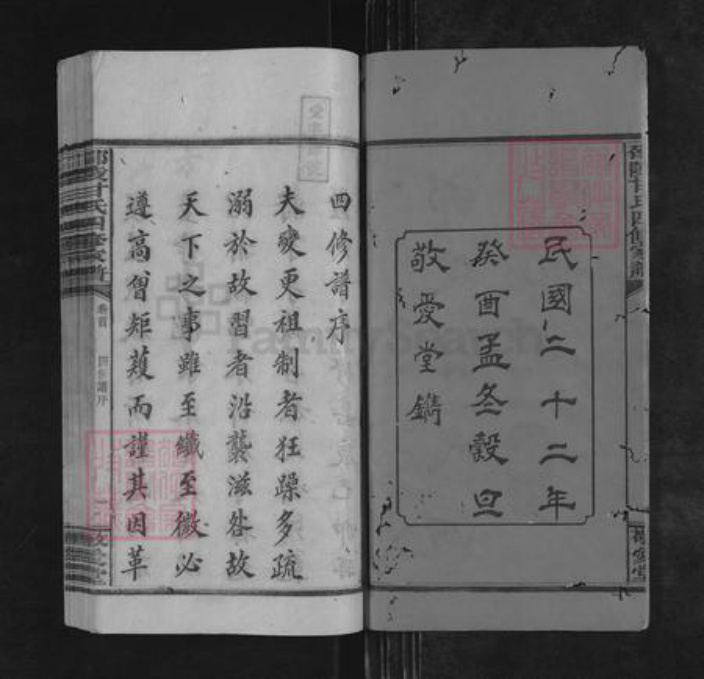 民國二十二年
癸酉孟冬穀旦
敬愛堂鐫
四修譜序
夫變更祖制者狂躁多疏
溺於故習者沿襲滋咎故
天下之事雖至纖至微必
遵高曾矩矱而謹其因革
甘氏四修家譜
卷首
四修譜序
敬愛堂
FamilySearch